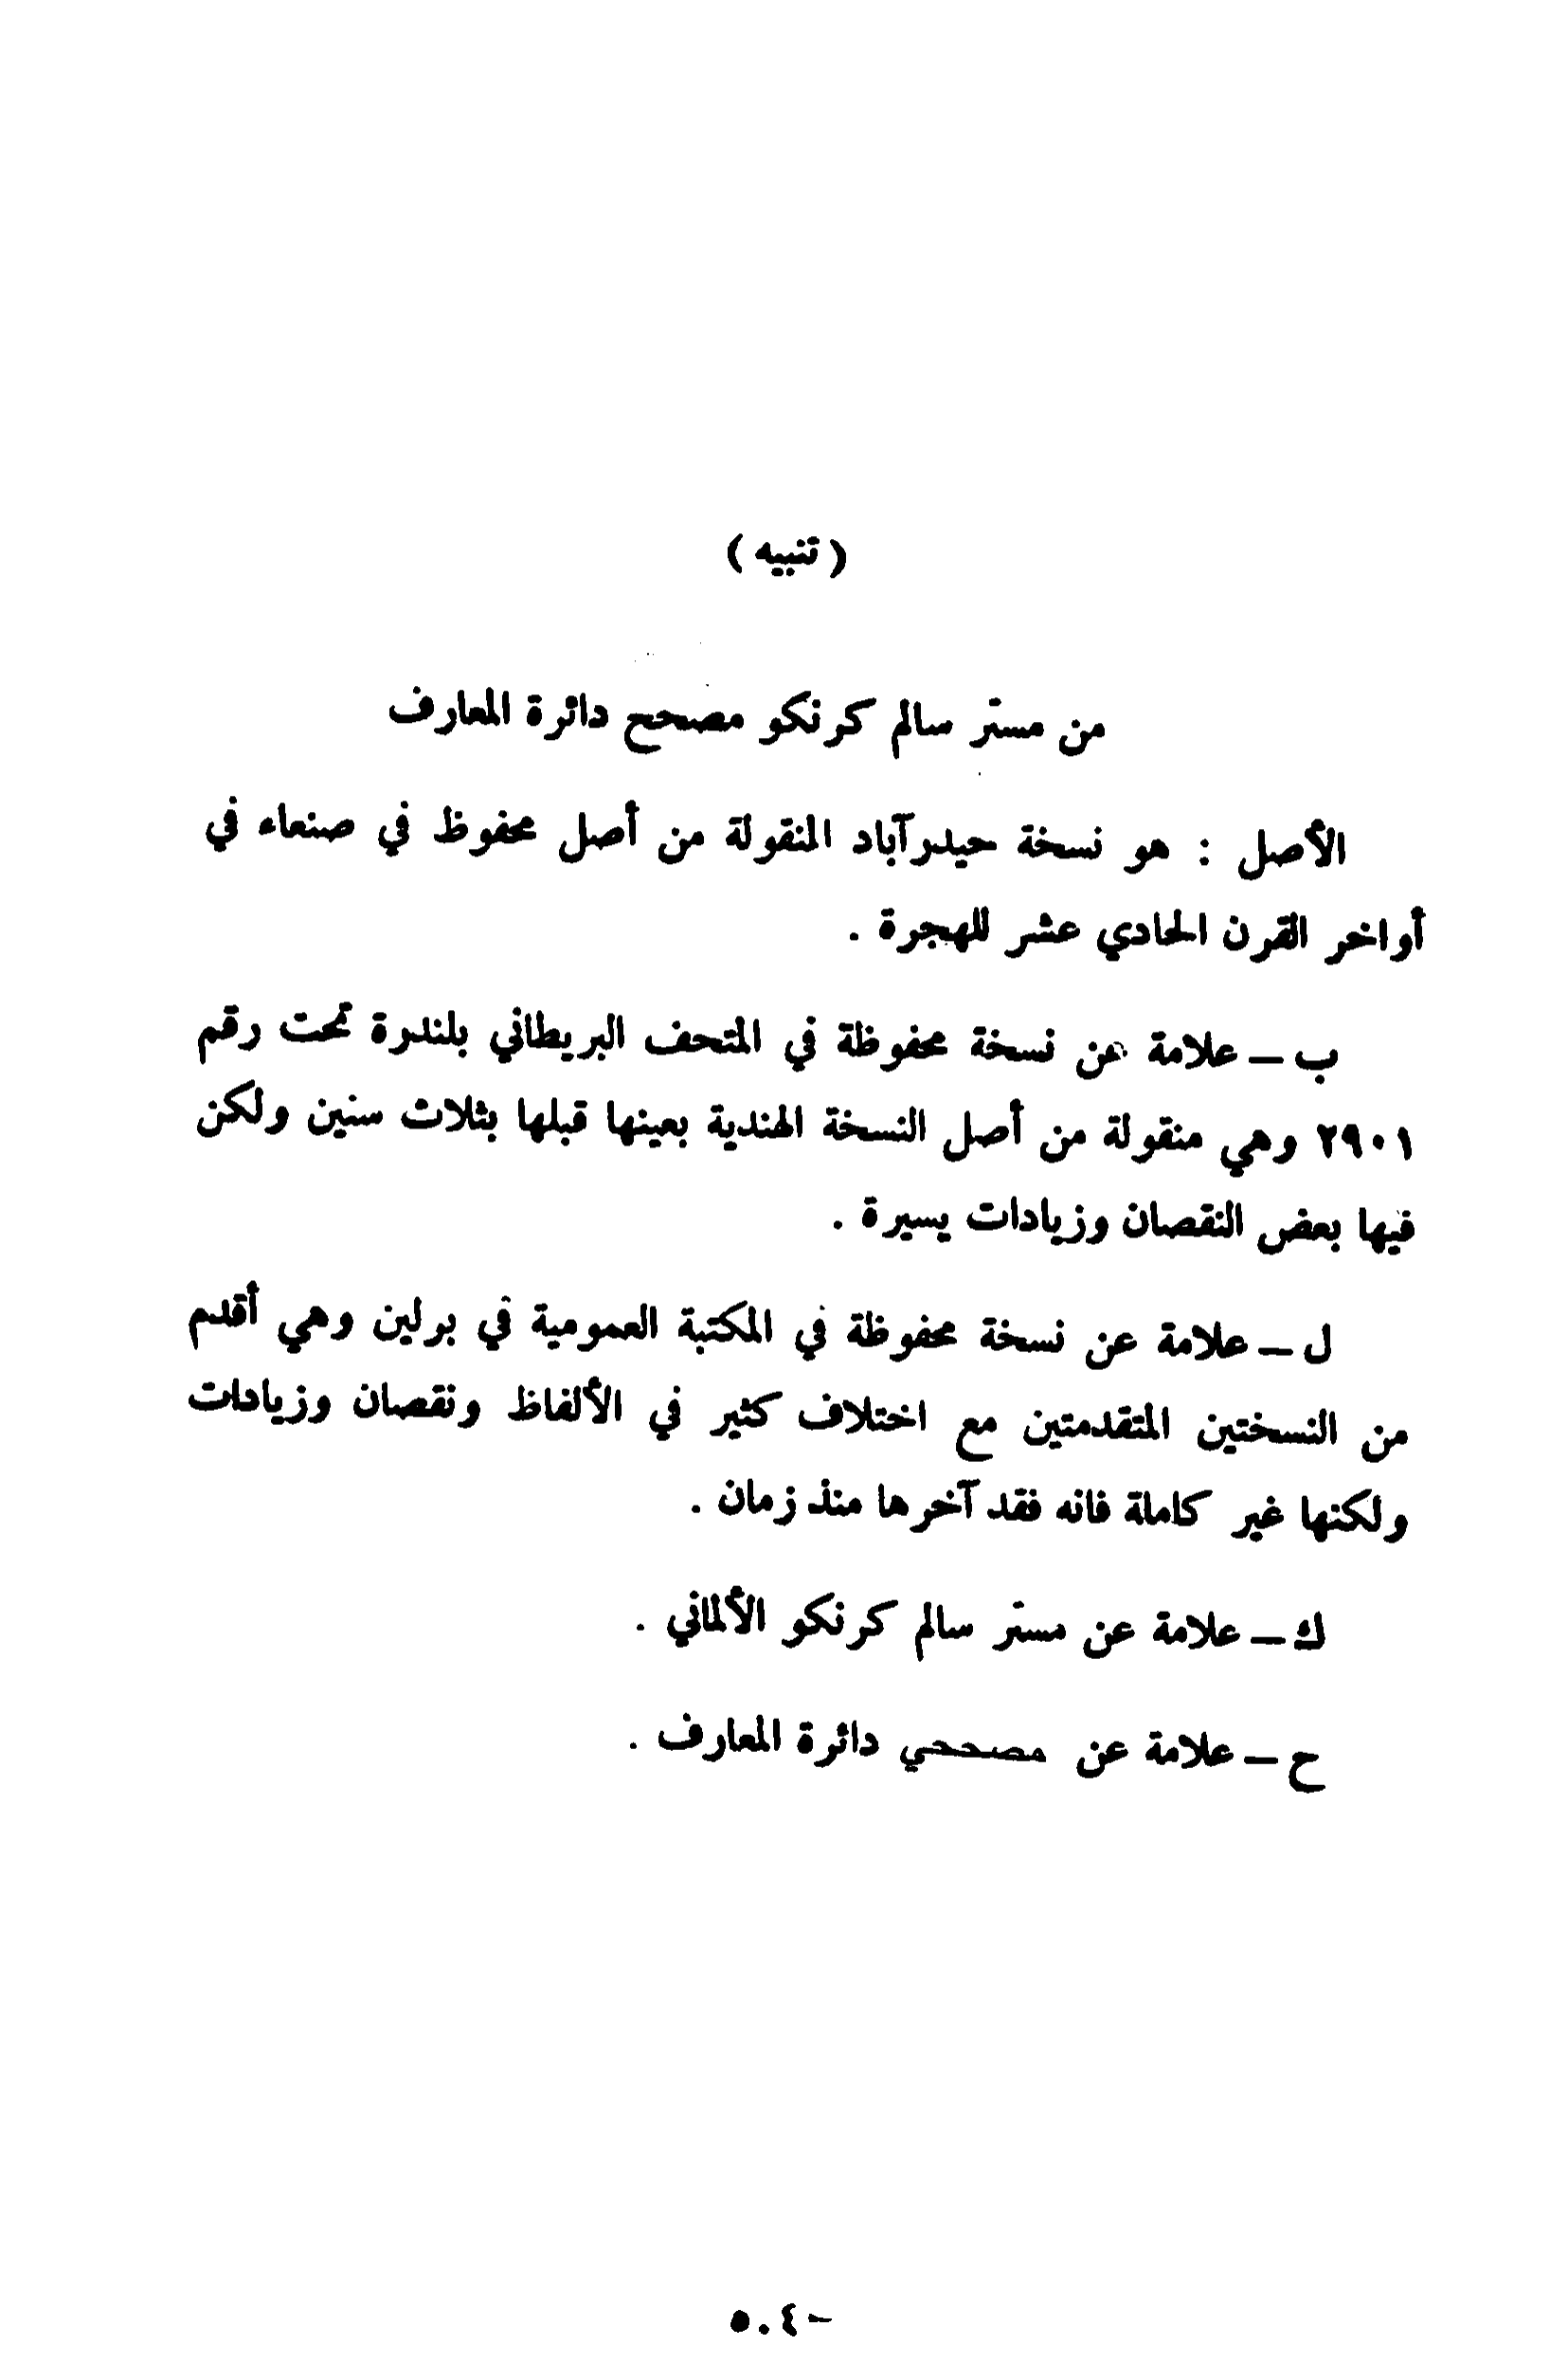 (تنبيه)
من مستر سالم كرنكو مصحح دائرة المعارف
الأصل : هو نسخة حيدرآباد المنقولة من أصل محفوظ في صنعاء في
أواخر القرن الحادي عشر للهجرة .
ب – علامة عن نسخة محفوظة في المتحف البريطاني بلندرة تحت رقم
٢٩٠١ وهي منقولة من أصل النسخة الهندية بعينها قبلها بثلاث سنين ولكن
فيها بعض النقصان وزيادات يسيرة .
ل – علامة عن نسخة محفوظة في المكتبة العمومية في برلين وهي أقدم
من النسختين المتقدمتين مع اختلاف كثير في الألفاظ ونقصان وزيادات
ولكنها غير كاملة فانه فقد آخرها منذ زمان .
ك – علامة عن مستر سالم كرنكو الألماني .
ح – علامة عن مصححي دائرة المعارف .